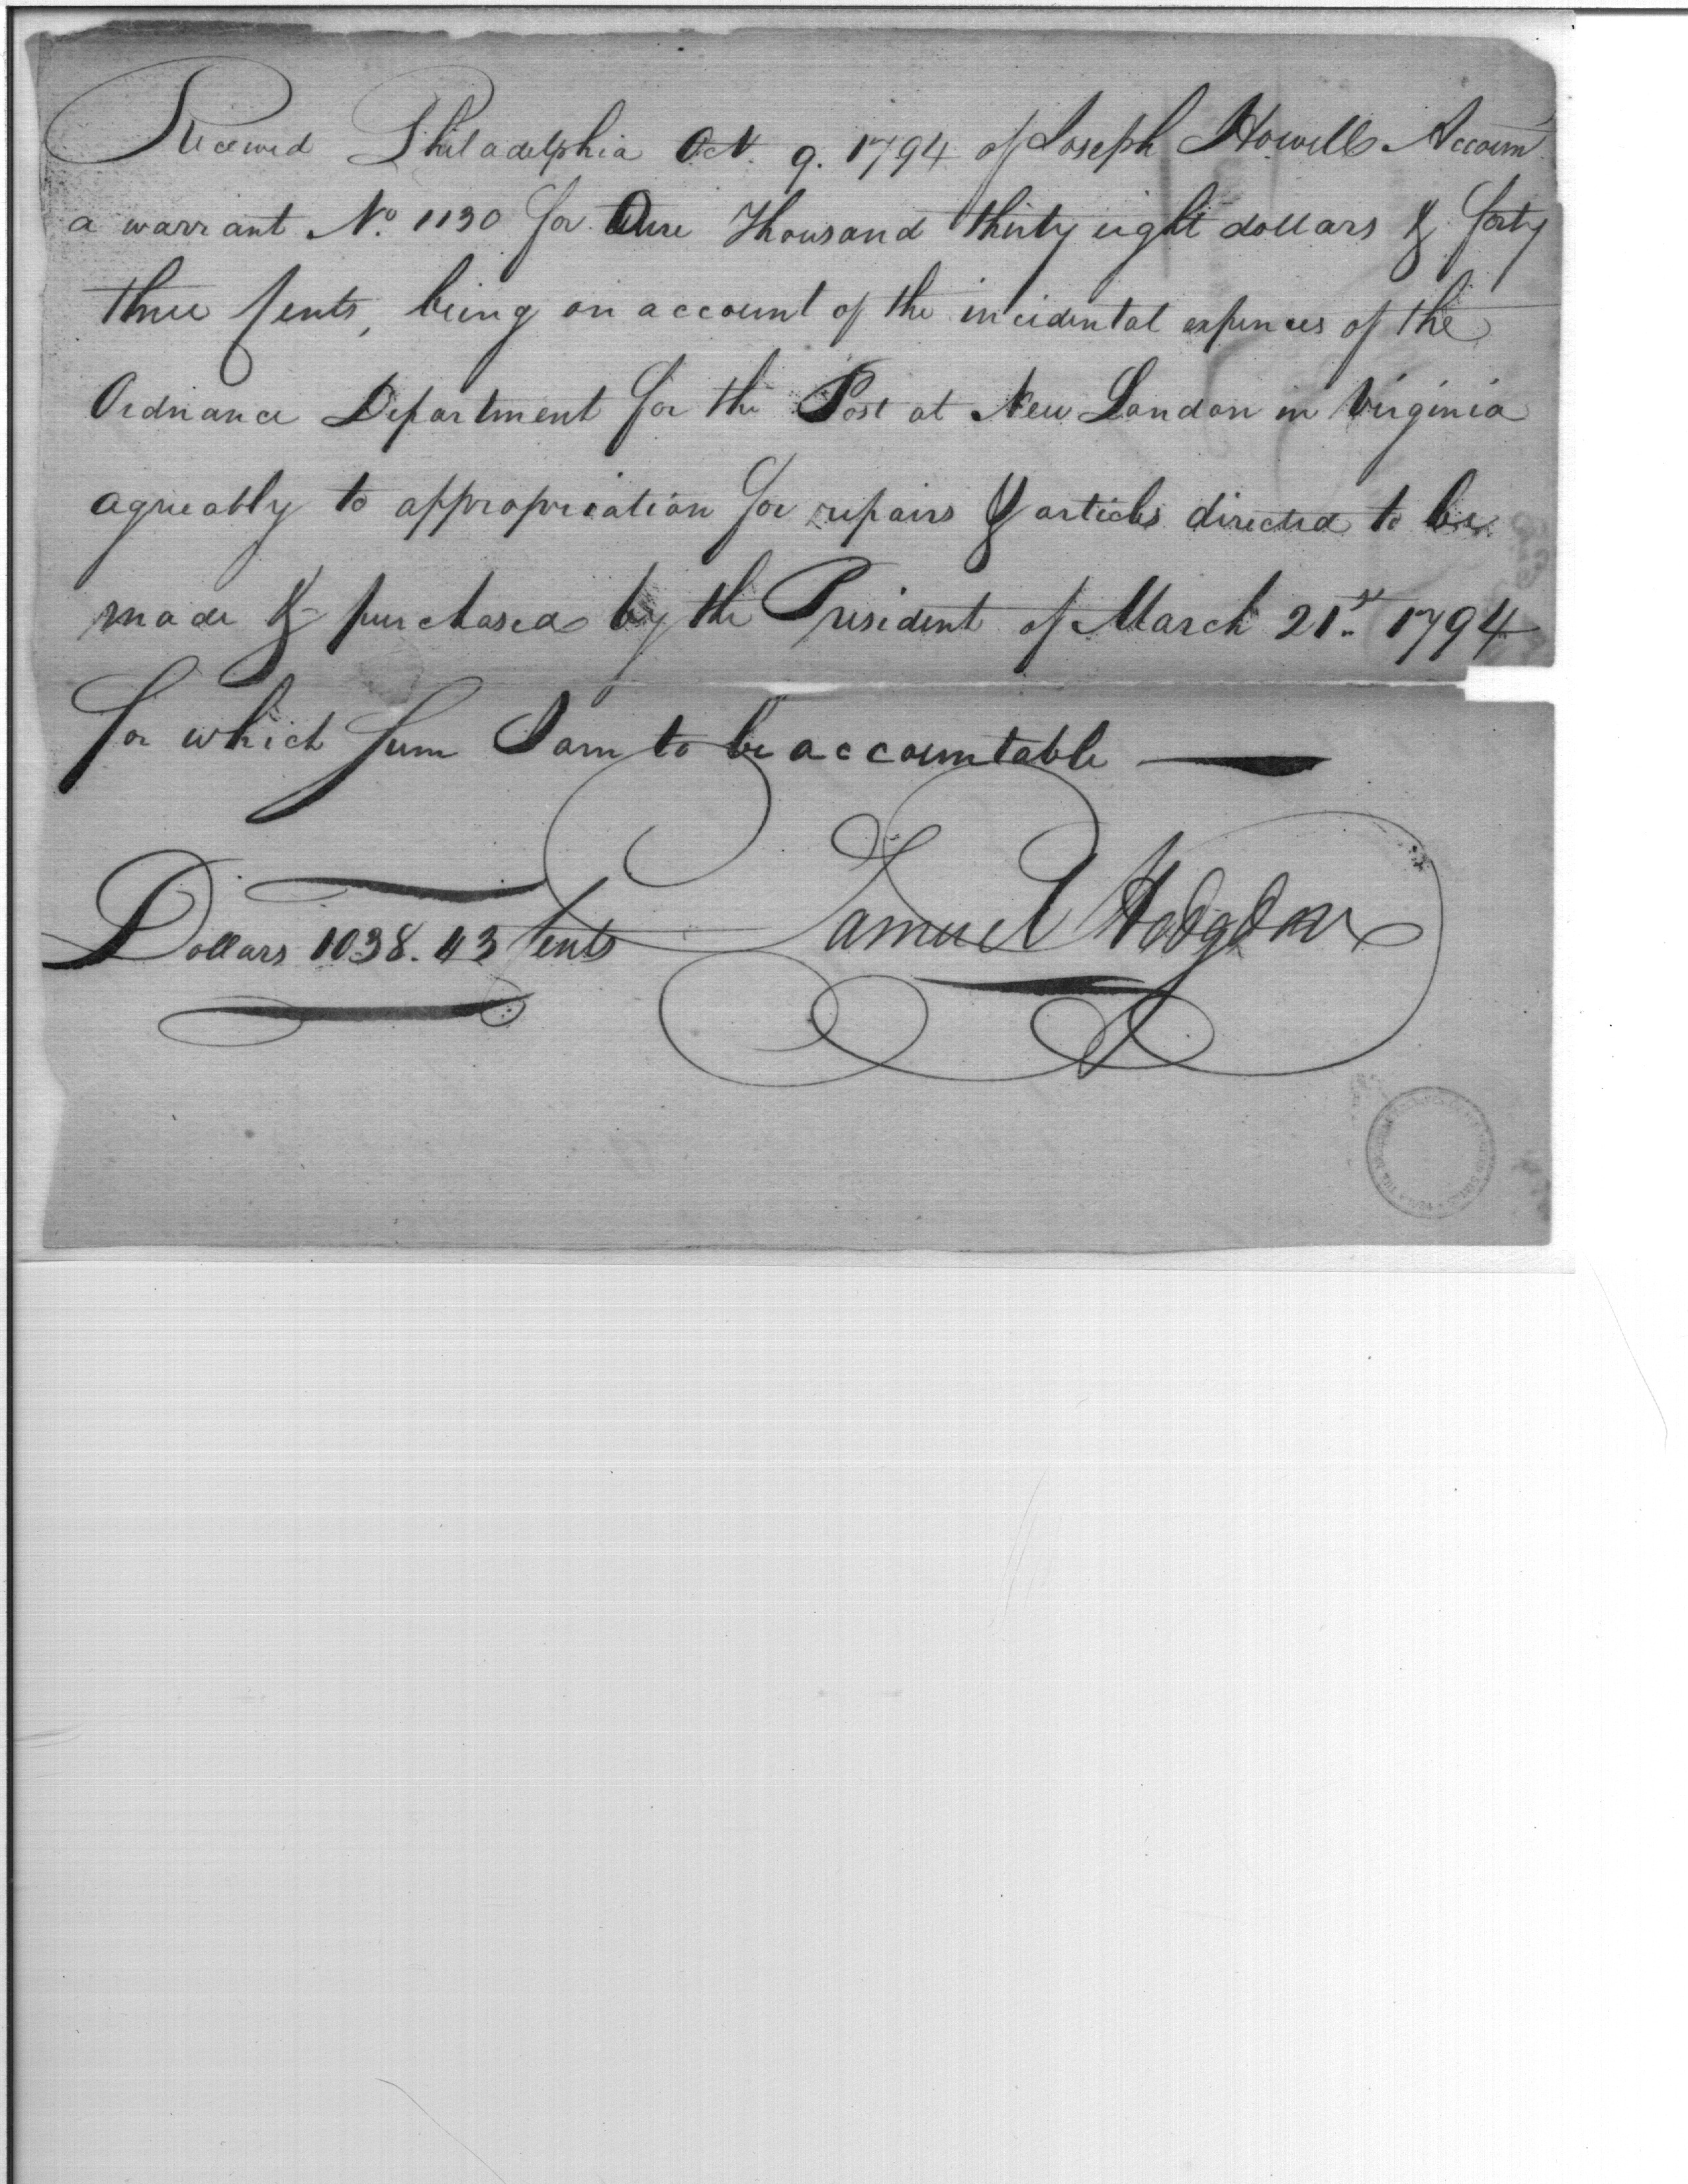 Received Philadelphia Oct. 9. 1794 of Joseph Howell Accoun
a warrant No. 1130 for One Thousand thirty eight dollars & forty
three Cents, being on account of the incidental expences of the
Ordnance Department for the Post at New London in Virginia
agreeably to appropriation for repairs & articles directed to be
made & purchased by the President of March 21st. 1794
for which sum I am to be accountable
Dollars 1038. 43 Cents Samuel Hodgdon